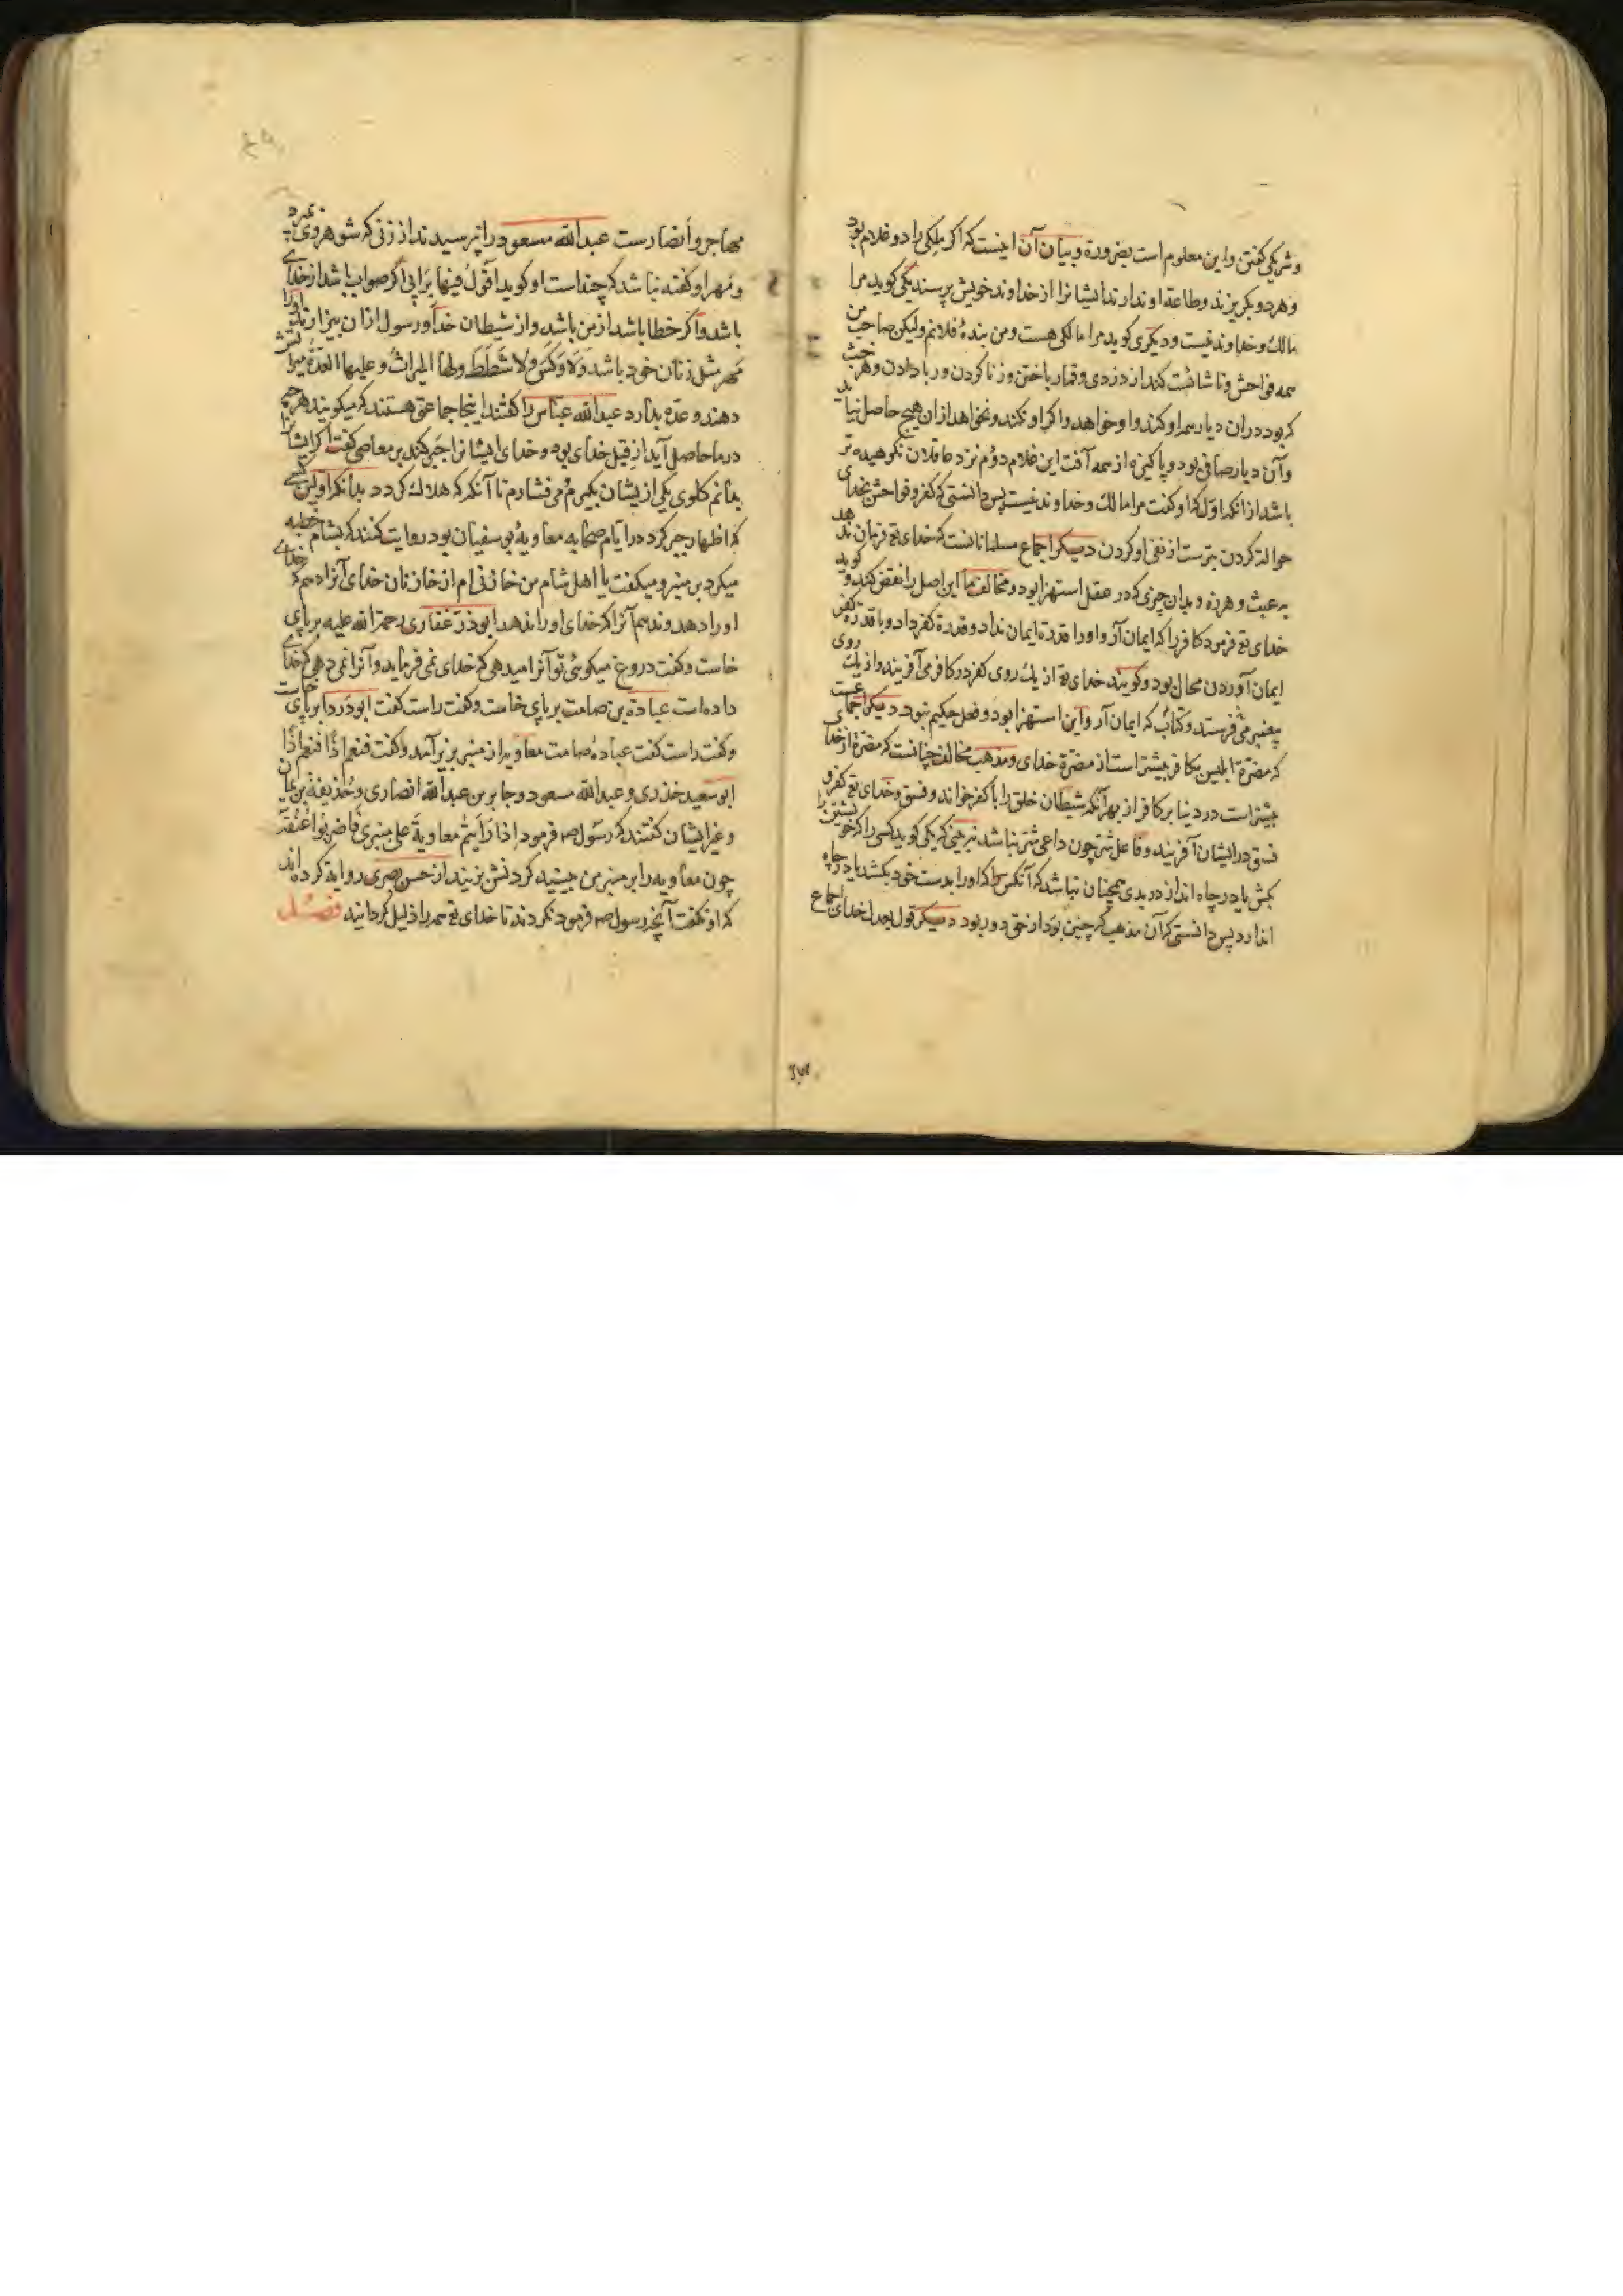 و شریکی گفتن و این معلوم است بضرورة و بیان آن اینست که اگر ملکی را دو غلام بود
و هر دو بگریزند و طاعة او ندارند ایشانرا از خداوند خویش پرسند یکی گوید مرا
مالک و خداوند نیست و دیگری گوید مرا مالکی هست و من بندهٔ فلانم ولیکن صاحب من
همه فواحش و ناشائست کند از دزدی و قمار باختن و زنا کردن و ربا دادن و هر خبث
که بود دران دیار همه او کند و او خواهد و اگر او نکند و نخواهد ازان هیچ حاصل نیاید
و آن دیار صافی بود و پاکیزه از همه آفت این غلام دوم نزد عاقلان نکوهیده تر
باشد از انکه اول که او گفت مرا مالک و خداوند نیست پس دانستی که کفر و فواحش بخدای
حوالت کردن بترست از نفی او کردن دیگر اجماع مسلمانانست که خدای تع فرمان ندهد
به عبث و هرزه و بدان چیزی که در عقل استهزا بود و مخالف ما این اصل را نقض کند و گوید
خدای تع فرمود کافر را که ایمان آر و او را قدرة ایمان نداد و قدرة کفر داد و با قدرة کفر
ایمان آوردن محال بود و گویند خدای تع از یک روی کفر در کافر می آفریند و از یک روی
پیغمبر می فرستد و کتاب که ایمان آر و این استهزا بود و فعل حکیم نبود دیگر اجماعست
که مضرة ابلیس بکافر بیشتر است از مضرة خدای و مذهب مخالف چنانست که مضرة از خدای
بیشتر است در دنیا بر کافر از بهر آنکه شیطان خلق را با کفر خواند و فسق و خدای تع کفر و
فسق در ایشان آفریند و فاعل شر چون داعی شر نباشد نبینی که یکی گوید کسی را که خویشتن را
بکش یا در چاه انداز در بدی همچنان نباشد که آنکس را که او را بدست خود بکشد یا در چاه
اندازد پس دانستی که آن مذهب که چنین بود از حق دور بود دیگر قول بعدل خدای اجماع
مهاجر و انصارست عبدالله مسعود را پرسیدند از زنی که شوهر وی بمیرد
و مهر او گفته نباشد که چند است او گوید اقول فیها برایی اگر صواب باشد از خدای
باشد و اگر خطا باشد از من باشد و از شیطان خدا و رسول ازان بیزارند او را
مهر مثل زنان خود باشد لا وکس ولا شطط ولها المیراث وعلیها العدة میراثش
دهند و عده بدارد عبدالله عباس را گفتند اینجا جماعتی هستند که میگویند هرچه
در ما حاصل آید از قبل خدای بود و خدای ایشانرا جبر کند بر معاصی گفت اگر ایشانرا
بدانم گلوی یکی ازیشان بگیرم و می فشارم تا آنگه که هلاک گردد بدانکه اولین کسی
که اظهار جبر کرد در ایام صحابه معاویهٔ بوسفیان بود روایت کنند که بشام خطبه
میکرد بر منبر و میگفت یا اهل شام من خازنی ام از خازنان خدای آنرا دهم که خدای
او را دهد و ندهم آنرا که خدای او را ندهد ابوذر غفاری رحمة الله علیه بر پای
خاست و گفت دروغ میگوئی تو آنرا میدهی که خدای نمی فرماید و آنرا نمی دهی که خدای
داده است عبادة بن صامت بر پای خاست و گفت راست گفت ابوذر دا بر پای خاست
و گفت راست گفت عبادهٔ صامت معاویه از منبر بزیر آمد و گفت فنعم اذًا فنعم اذًا
ابو سعید خدری و عبدالله مسعود و جابر بن عبدالله انصاری و حذیفة بن یمان
و غیر ایشان گفتند که رسول ص فرمود اذا رأیتم معاویة علی منبری فاضربوا عنقه
چون معاویه را بر منبر من ببینید گردنش بزنید از حسن بصری روایة کرده اند
که او گفت آنچه رسول ص فرمود نکردند تا خدای تع همه را ذلیل گردانید فصل